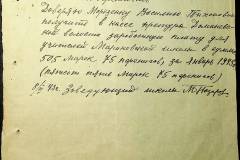 Доверяю Морозенку Василию Тихоновичу
получить в кассе прендора Доманев-
ской волости заработную плату для
учителей Мариновской школы в сумме
505 марок 75 пфенигов, за январь 1943г.
(пятьсот пять марок 75 пфенигов)
Заведующий школы